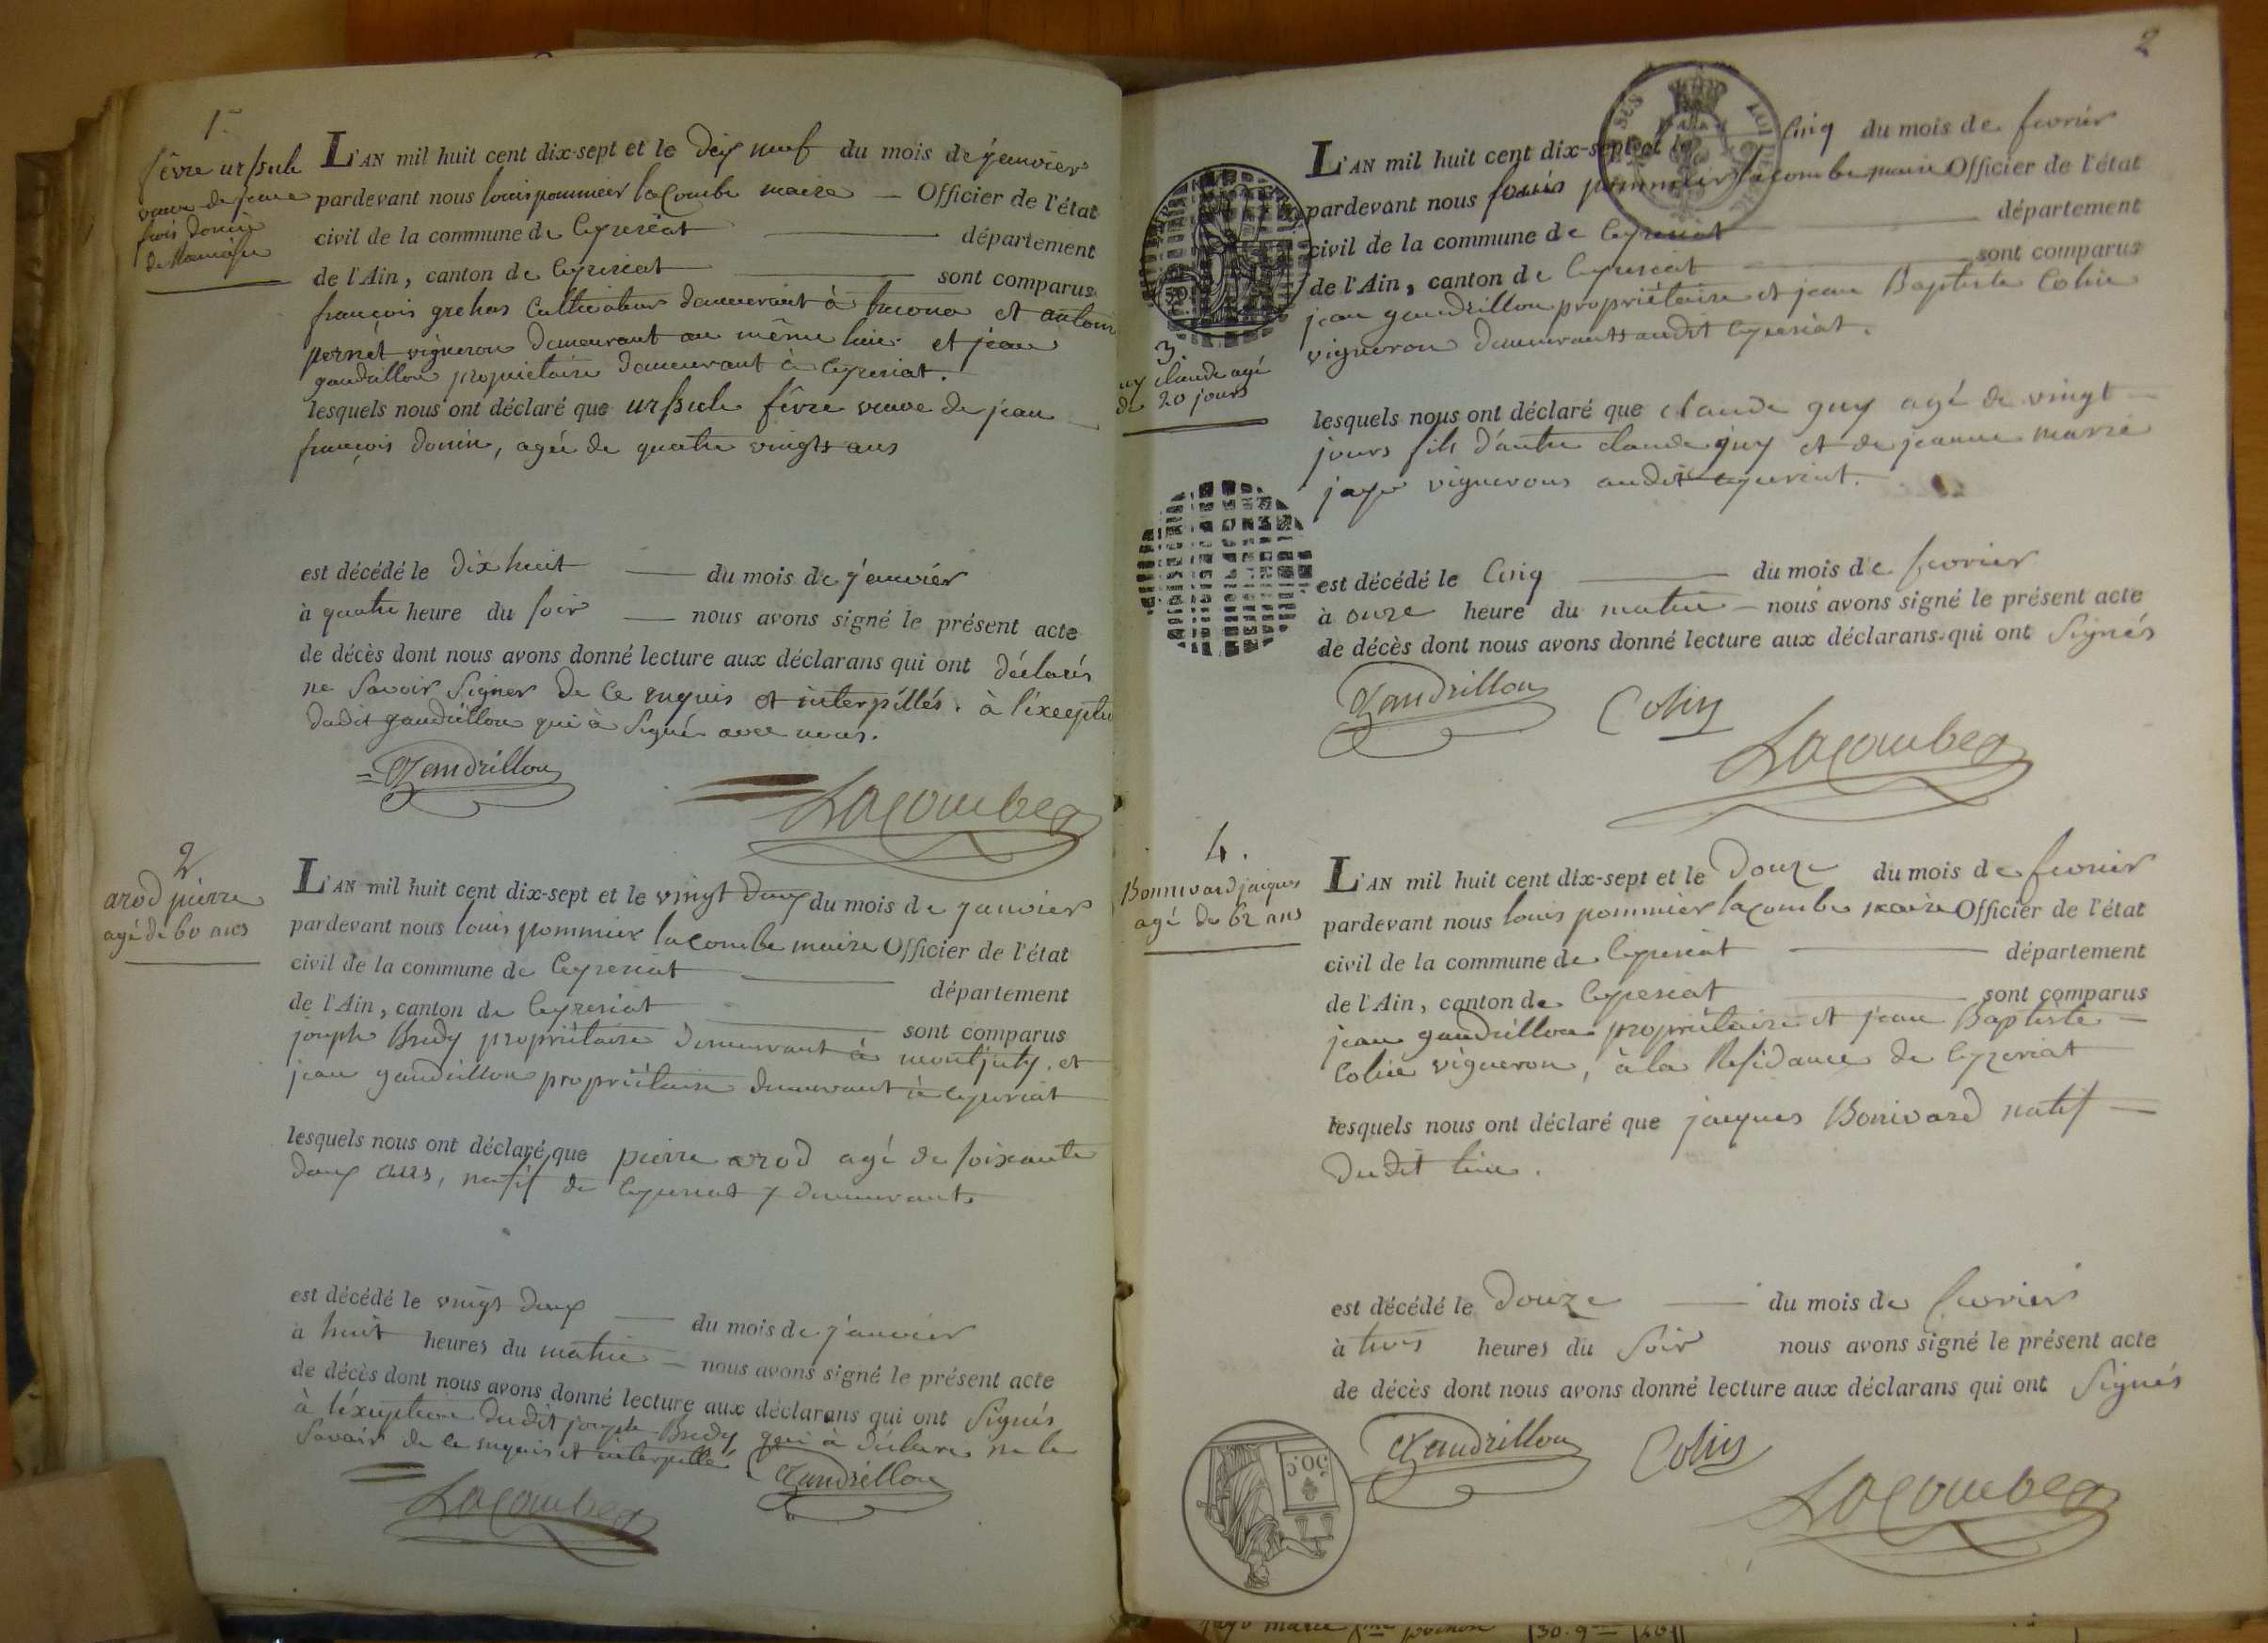 1.
fèvre urssule
veuve de jean
frois donin
L'AN mil huit cent dix-sept et le dix neuf du mois de janvier
pardevant nous louis pommier lacombe maire — Officier de l'état
civil de la commune de Ceyzeriat département
de l'Ain, canton de Ceyzeriat sont comparus
françois grehas Cultivateur demeurant à et antoine
pernet vigneron demeurant au même lieu et jean
gaudrillon propriétaire demeurant à Ceyzeriat.
lesquels nous ont déclaré que urssule fèvre veuve de jean
françois donin, agée de quatre vingts ans
est décédé le dix huit — du mois de janvier
à quatre heure du soir — nous avons signé le présent acte
de décès dont nous avons donné lecture aux déclarans qui ont déclarés
ne savoir signer de ce enquis et interpéllés. à l'éxceptio
dudit gaudrillon qui à signé avec nous.
Gaudrillon
Lacombe
2
arod pierre
agé de 60 ans
L'AN mil huit cent dix-sept et le vingt deux du mois de janvier
pardevant nous louis pommier lacombe maire Officier de l'état
civil de la commune de Ceyzeriat département
de l'Ain, canton de Ceyzeriat sont comparus
joseph Brudy propriétaire demeurant à montjuly. et
jean gaudrillon propriétaire demeurant à Ceyzeriat
lesquels nous ont déclaré que pierre arod agé de soixante
deux ans, natif de Ceyzeriat y demeurant
est décédé le vingt deux — du mois de janvier
à huit heures du matin — nous avons signé le présent acte
de décès dont nous avons donné lecture aux déclarans qui ont Signés
à l'éxception dudit joseph Brudy qui à déclaré ne le
Savoir de ce enquis et interpellé
Gaudrillon
Lacombe
2
3.
guy claude agé
de 20 jours
L'AN mil huit cent dix-sept et le Cinq du mois de fevrier
pardevant nous louis pommier lacombe maire Officier de l'état
civil de la commune de Ceyzeriat département
de l'Ain, canton de Ceyzeriat sont comparus
jean gaudrillon propriétaire et jean Baptiste Colin
vigneron demeurants audit Ceyzeriat.
lesquels nous ont déclaré que claude guy agé de vingt —
jours fils d'autre claude guy et de jeanne marie
vignerons audit Ceyzeriat.
est décédé le Cinq — du mois de fevrier
à onze heure du matin — nous avons signé le présent acte
de décès dont nous avons donné lecture aux déclarans qui ont Signés
Gaudrillon Colin
Lacombe
4.
Bonnivard jacques
agé de 62 ans
L'AN mil huit cent dix-sept et le Douze du mois de fevrier
pardevant nous louis pommier lacombe maire Officier de l'état
civil de la commune de Ceyzeriat département
de l'Ain, canton de Ceyzeriat sont comparus
jean gaudrillon propriétaire et jean Baptiste —
Colin vigneron, à la Résidance de Ceyzeriat
lesquels nous ont déclaré que jacques Bonivard natif —
dudit lieu.
est décédé le Douze — du mois de fevrier
à trois heures du soir nous avons signé le présent acte
de décès dont nous avons donné lecture aux déclarans qui ont Signés
50.C
Gaudrillon Colin
Lacombe